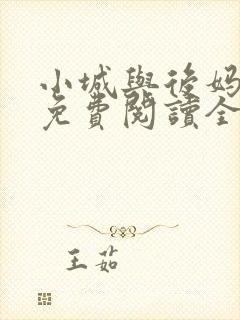 小城與後妈
免費閱讀全
王茹